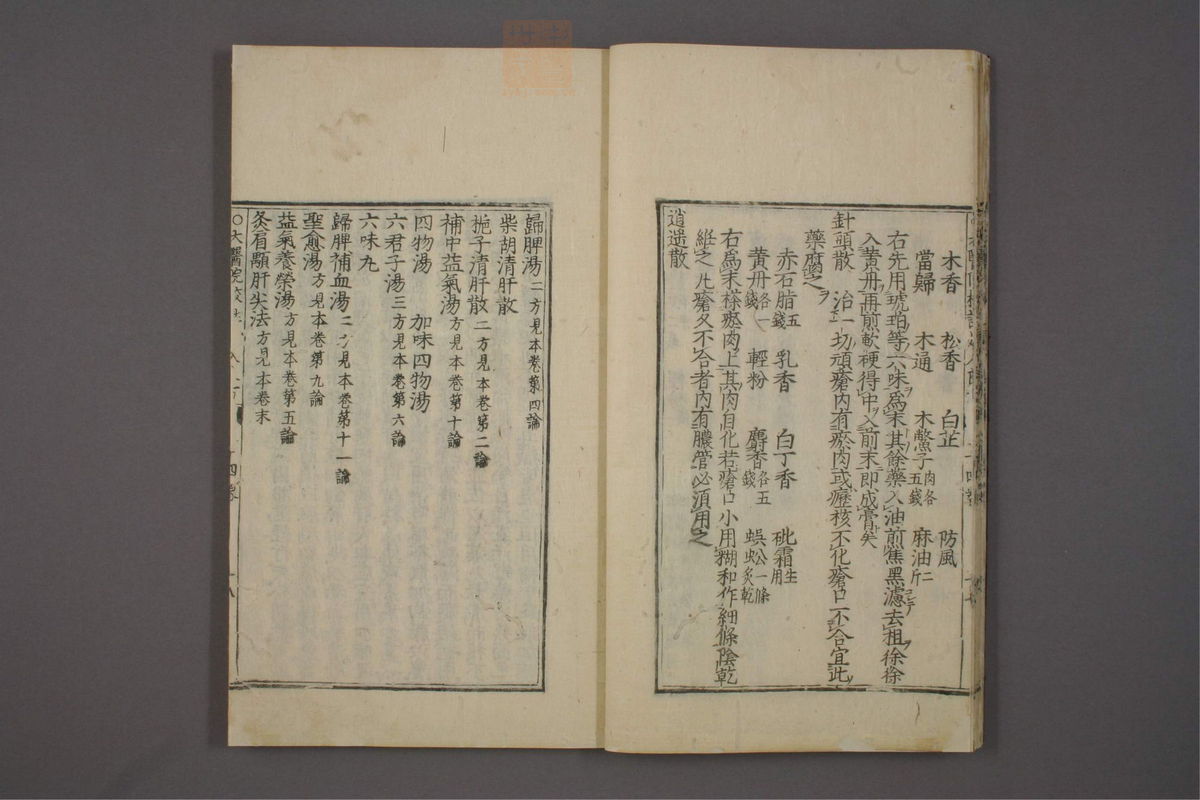 木香　松香　白芷　防風
當歸　木通　木鱉子肉各五錢　麻油二斤
右先用琥珀等六味爲末其餘藥入油煎焦黑濾去粗徐徐
入黄丹再煎軟硬得中入前末即成膏矣
針頭散　治一切頑瘡内有瘀肉或癧核不化瘡口不合宜此
藥腐之
赤石脂五錢　乳香　白丁香　砒霜生用
黄丹各一錢　輕粉　麝香各五錢　蜈蚣一條炙乾
右爲末搽瘀肉上其肉自化若瘡口小用糊和作細條陰乾
維之凡瘡久不合者内有膿管必須用之
逍遥散
歸脾湯二方見本卷第四論
柴胡清肝散
梔子清肝散二方見本卷第二論
補中益氣湯方見本卷第十論
四物湯　加味四物湯
六君子湯三方見本卷第六論
六味丸
歸脾補血湯二方見本卷第十一論
聖愈湯方見本卷第九論
益氣養榮湯方見本卷第五論
灸肩顒肝尖法方見本卷末
○太醫院校